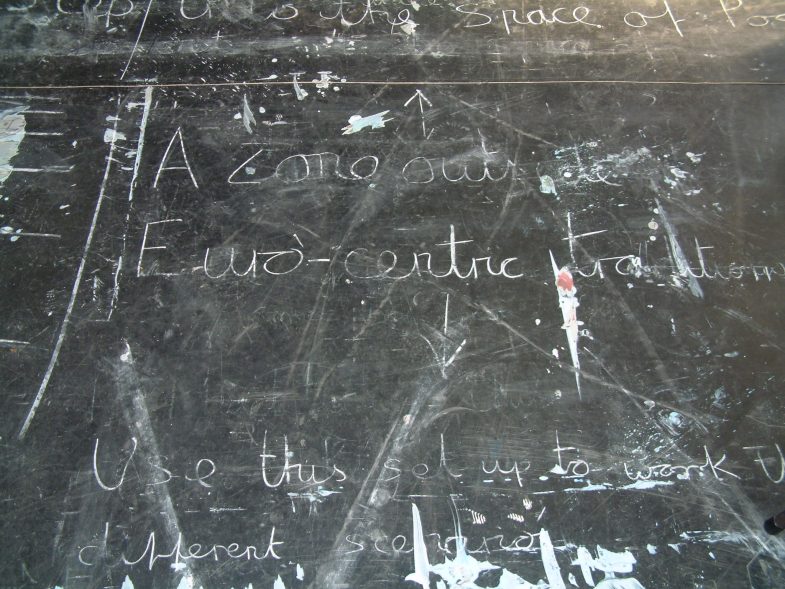 is the space of
A zone outside
Euro-centric tradition
Use this set up to work
different scenarios